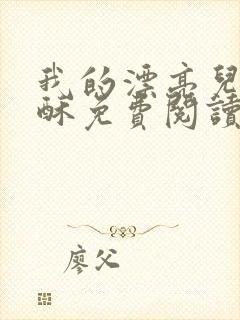 我的漂亮兒
酥免費閱讀
廖父